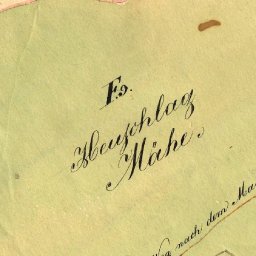 F.9.
Heuschlag
Mähe.
Weg nach dem Ma